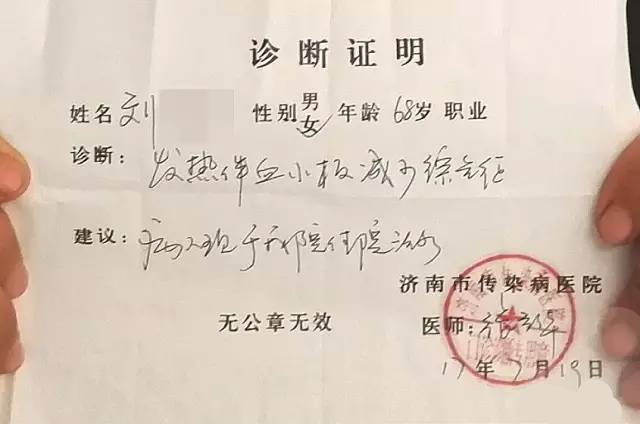 诊断证明
姓名 刘 性别 男 女 年龄 68岁 职业
诊断: 发热伴血小板减少综合征
建议: 病人现于我院住院治疗
济南市传染病医院
无公章无效 医师:
17年 月19日